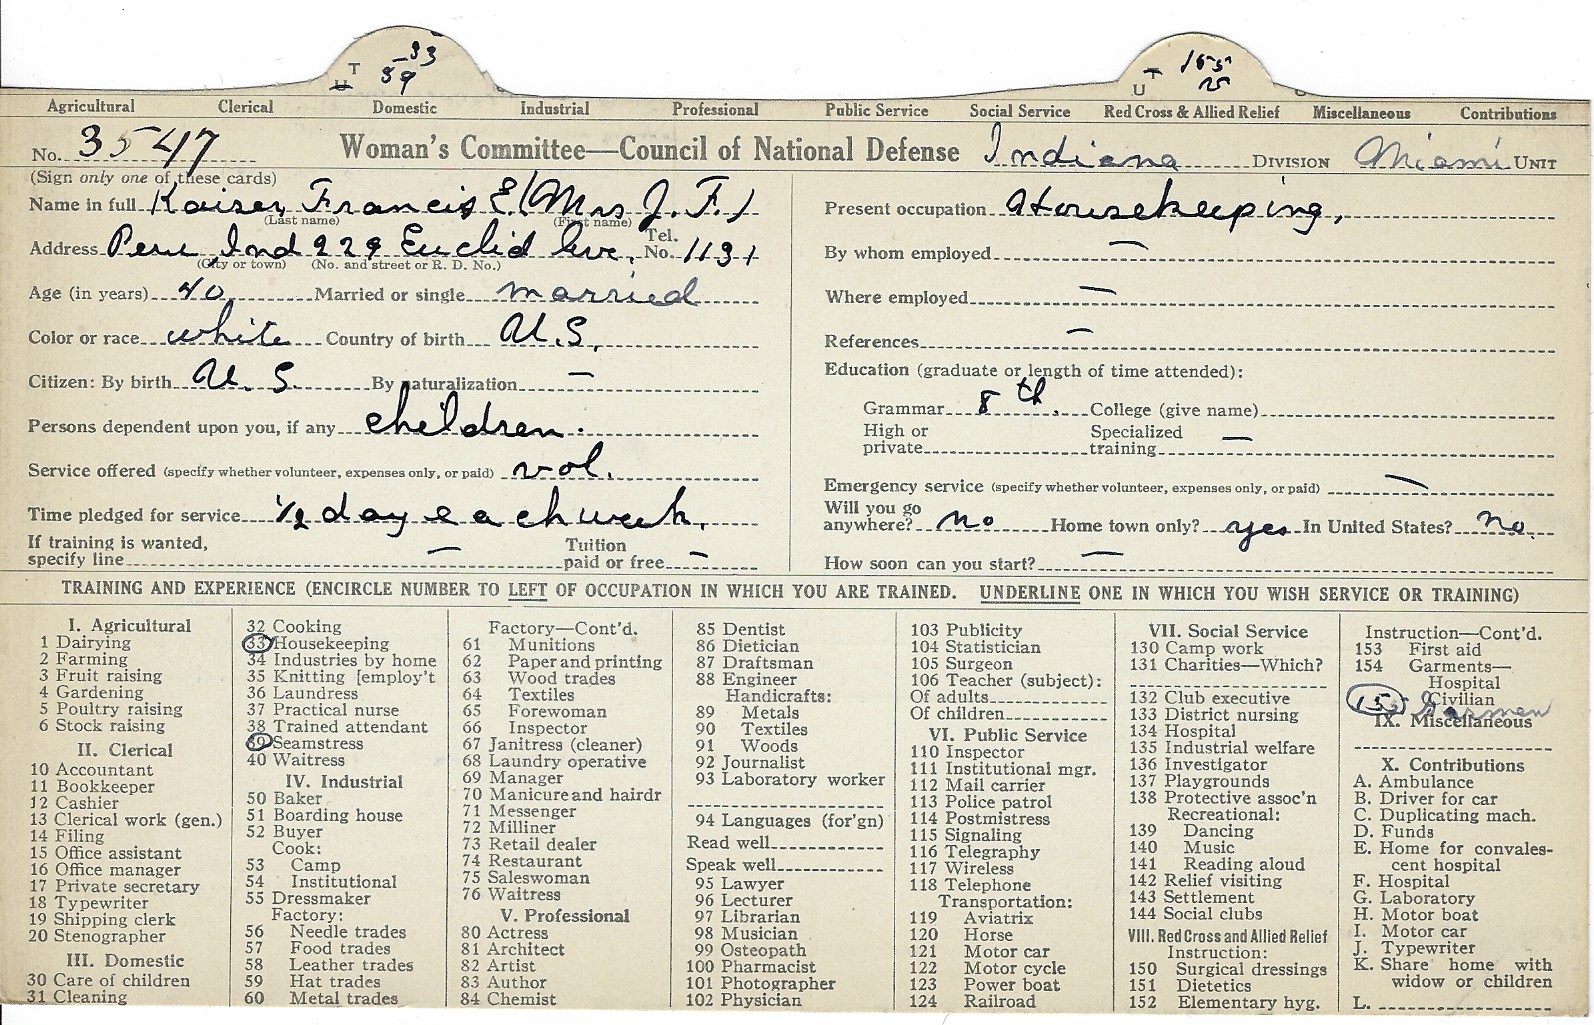 T 33 T 155
U 39 U 15
Agricultural Clerical Domestic Industrial Professional Public Service Social Service Red Cross & Allied Relief Miscellaneous Contributions
No. 3547 Woman's Committee—Council of National Defense Indiana DIVISION Miami UNIT
(Sign only one of these cards)
Name in full Kaiser, Francis E. (Mrs J. F.)
(Last name) (First name)
Address Peru Ind 229 Euclid Ave. Tel. No. 1131
(City or town) (No. and street or R. D. No.)
Age (in years) 40 Married or single married
Color or race white Country of birth U.S.
Citizen: By birth U.S. By naturalization —
Persons dependent upon you, if any children.
Service offered (specify whether volunteer, expenses only, or paid) vol.
Time pledged for service 1/2 day each week.
If training is wanted, specify line — Tuition paid or free —
Present occupation Housekeeping,
By whom employed —
Where employed —
References —
Education (graduate or length of time attended):
Grammar 8th. College (give name)
High or private Specialized training —
Emergency service (specify whether volunteer, expenses only, or paid) —
Will you go anywhere? no Home town only? yes In United States? no.
How soon can you start? —
TRAINING AND EXPERIENCE (ENCIRCLE NUMBER TO LEFT OF OCCUPATION IN WHICH YOU ARE TRAINED. UNDERLINE ONE IN WHICH YOU WISH SERVICE OR TRAINING)
I. Agricultural
1 Dairying
2 Farming
3 Fruit raising
4 Gardening
5 Poultry raising
6 Stock raising
II. Clerical
10 Accountant
11 Bookkeeper
12 Cashier
13 Clerical work (gen.)
14 Filing
15 Office assistant
16 Office manager
17 Private secretary
18 Typewriter
19 Shipping clerk
20 Stenographer
III. Domestic
30 Care of children
31 Cleaning
32 Cooking
33 Housekeeping
34 Industries by home
35 Knitting [employ't
36 Laundress
37 Practical nurse
38 Trained attendant
39 Seamstress
40 Waitress
IV. Industrial
50 Baker
51 Boarding house
52 Buyer
Cook:
53 Camp
54 Institutional
55 Dressmaker
Factory:
56 Needle trades
57 Food trades
58 Leather trades
59 Hat trades
60 Metal trades
Factory—Cont'd.
61 Munitions
62 Paper and printing
63 Wood trades
64 Textiles
65 Forewoman
66 Inspector
67 Janitress (cleaner)
68 Laundry operative
69 Manager
70 Manicure and hairdr
71 Messenger
72 Milliner
73 Retail dealer
74 Restaurant
75 Saleswoman
76 Waitress
V. Professional
80 Actress
81 Architect
82 Artist
83 Author
84 Chemist
85 Dentist
86 Dietician
87 Draftsman
88 Engineer
Handicrafts:
89 Metals
90 Textiles
91 Woods
92 Journalist
93 Laboratory worker
94 Languages (for'gn)
Read well
Speak well
95 Lawyer
96 Lecturer
97 Librarian
98 Musician
99 Osteopath
100 Pharmacist
101 Photographer
102 Physician
103 Publicity
104 Statistician
105 Surgeon
106 Teacher (subject):
Of adults
Of children
VI. Public Service
110 Inspector
111 Institutional mgr.
112 Mail carrier
113 Police patrol
114 Postmistress
115 Signaling
116 Telegraphy
117 Wireless
118 Telephone
Transportation:
119 Aviatrix
120 Horse
121 Motor car
122 Motor cycle
123 Power boat
124 Railroad
VII. Social Service
130 Camp work
131 Charities—Which?
132 Club executive
133 District nursing
134 Hospital
135 Industrial welfare
136 Investigator
137 Playgrounds
138 Protective assoc'n
Recreational:
139 Dancing
140 Music
141 Reading aloud
142 Relief visiting
143 Settlement
144 Social clubs
VIII. Red Cross and Allied Relief
Instruction:
150 Surgical dressings
151 Dietetics
152 Elementary hyg.
Instruction—Cont'd.
153 First aid
154 Garments—
Hospital
155 Civilian
Garmen
IX. Miscellaneous
X. Contributions
A. Ambulance
B. Driver for car
C. Duplicating mach.
D. Funds
E. Home for convales-
cent hospital
F. Hospital
G. Laboratory
H. Motor boat
I. Motor car
J. Typewriter
K. Share home with
widow or children
L.